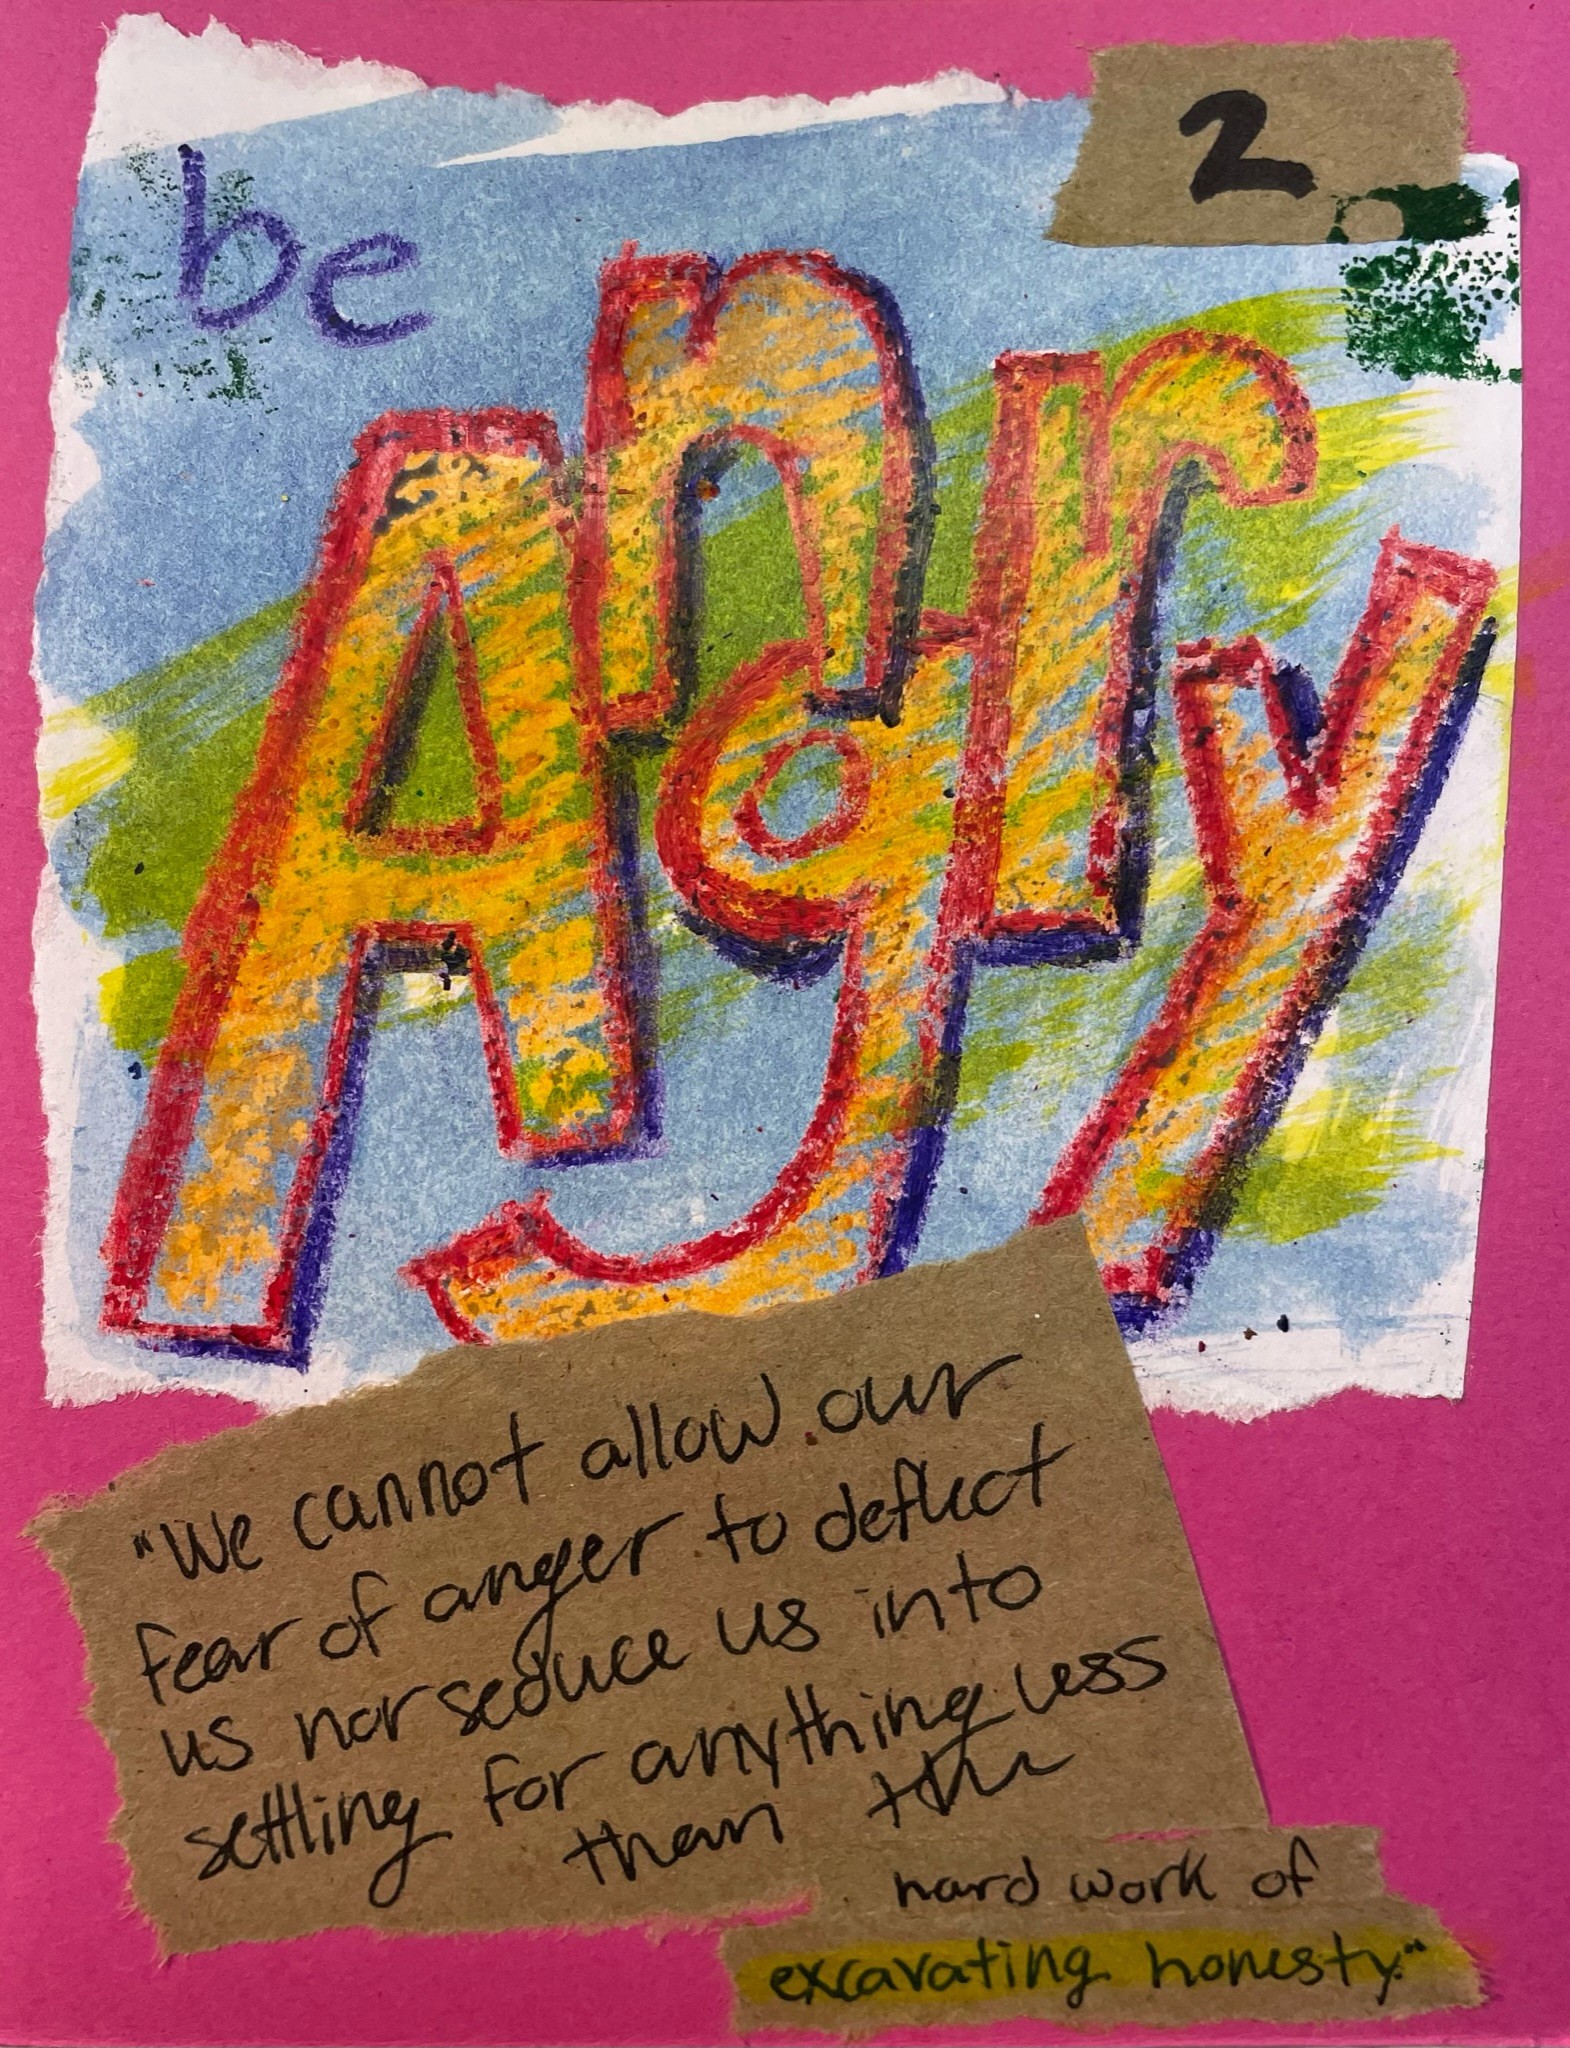 2
be
Angry
"We cannot allow our
fear of anger to deflect
us nor seduce us into
settling for anything less
than the
hard work of
excavating honesty."